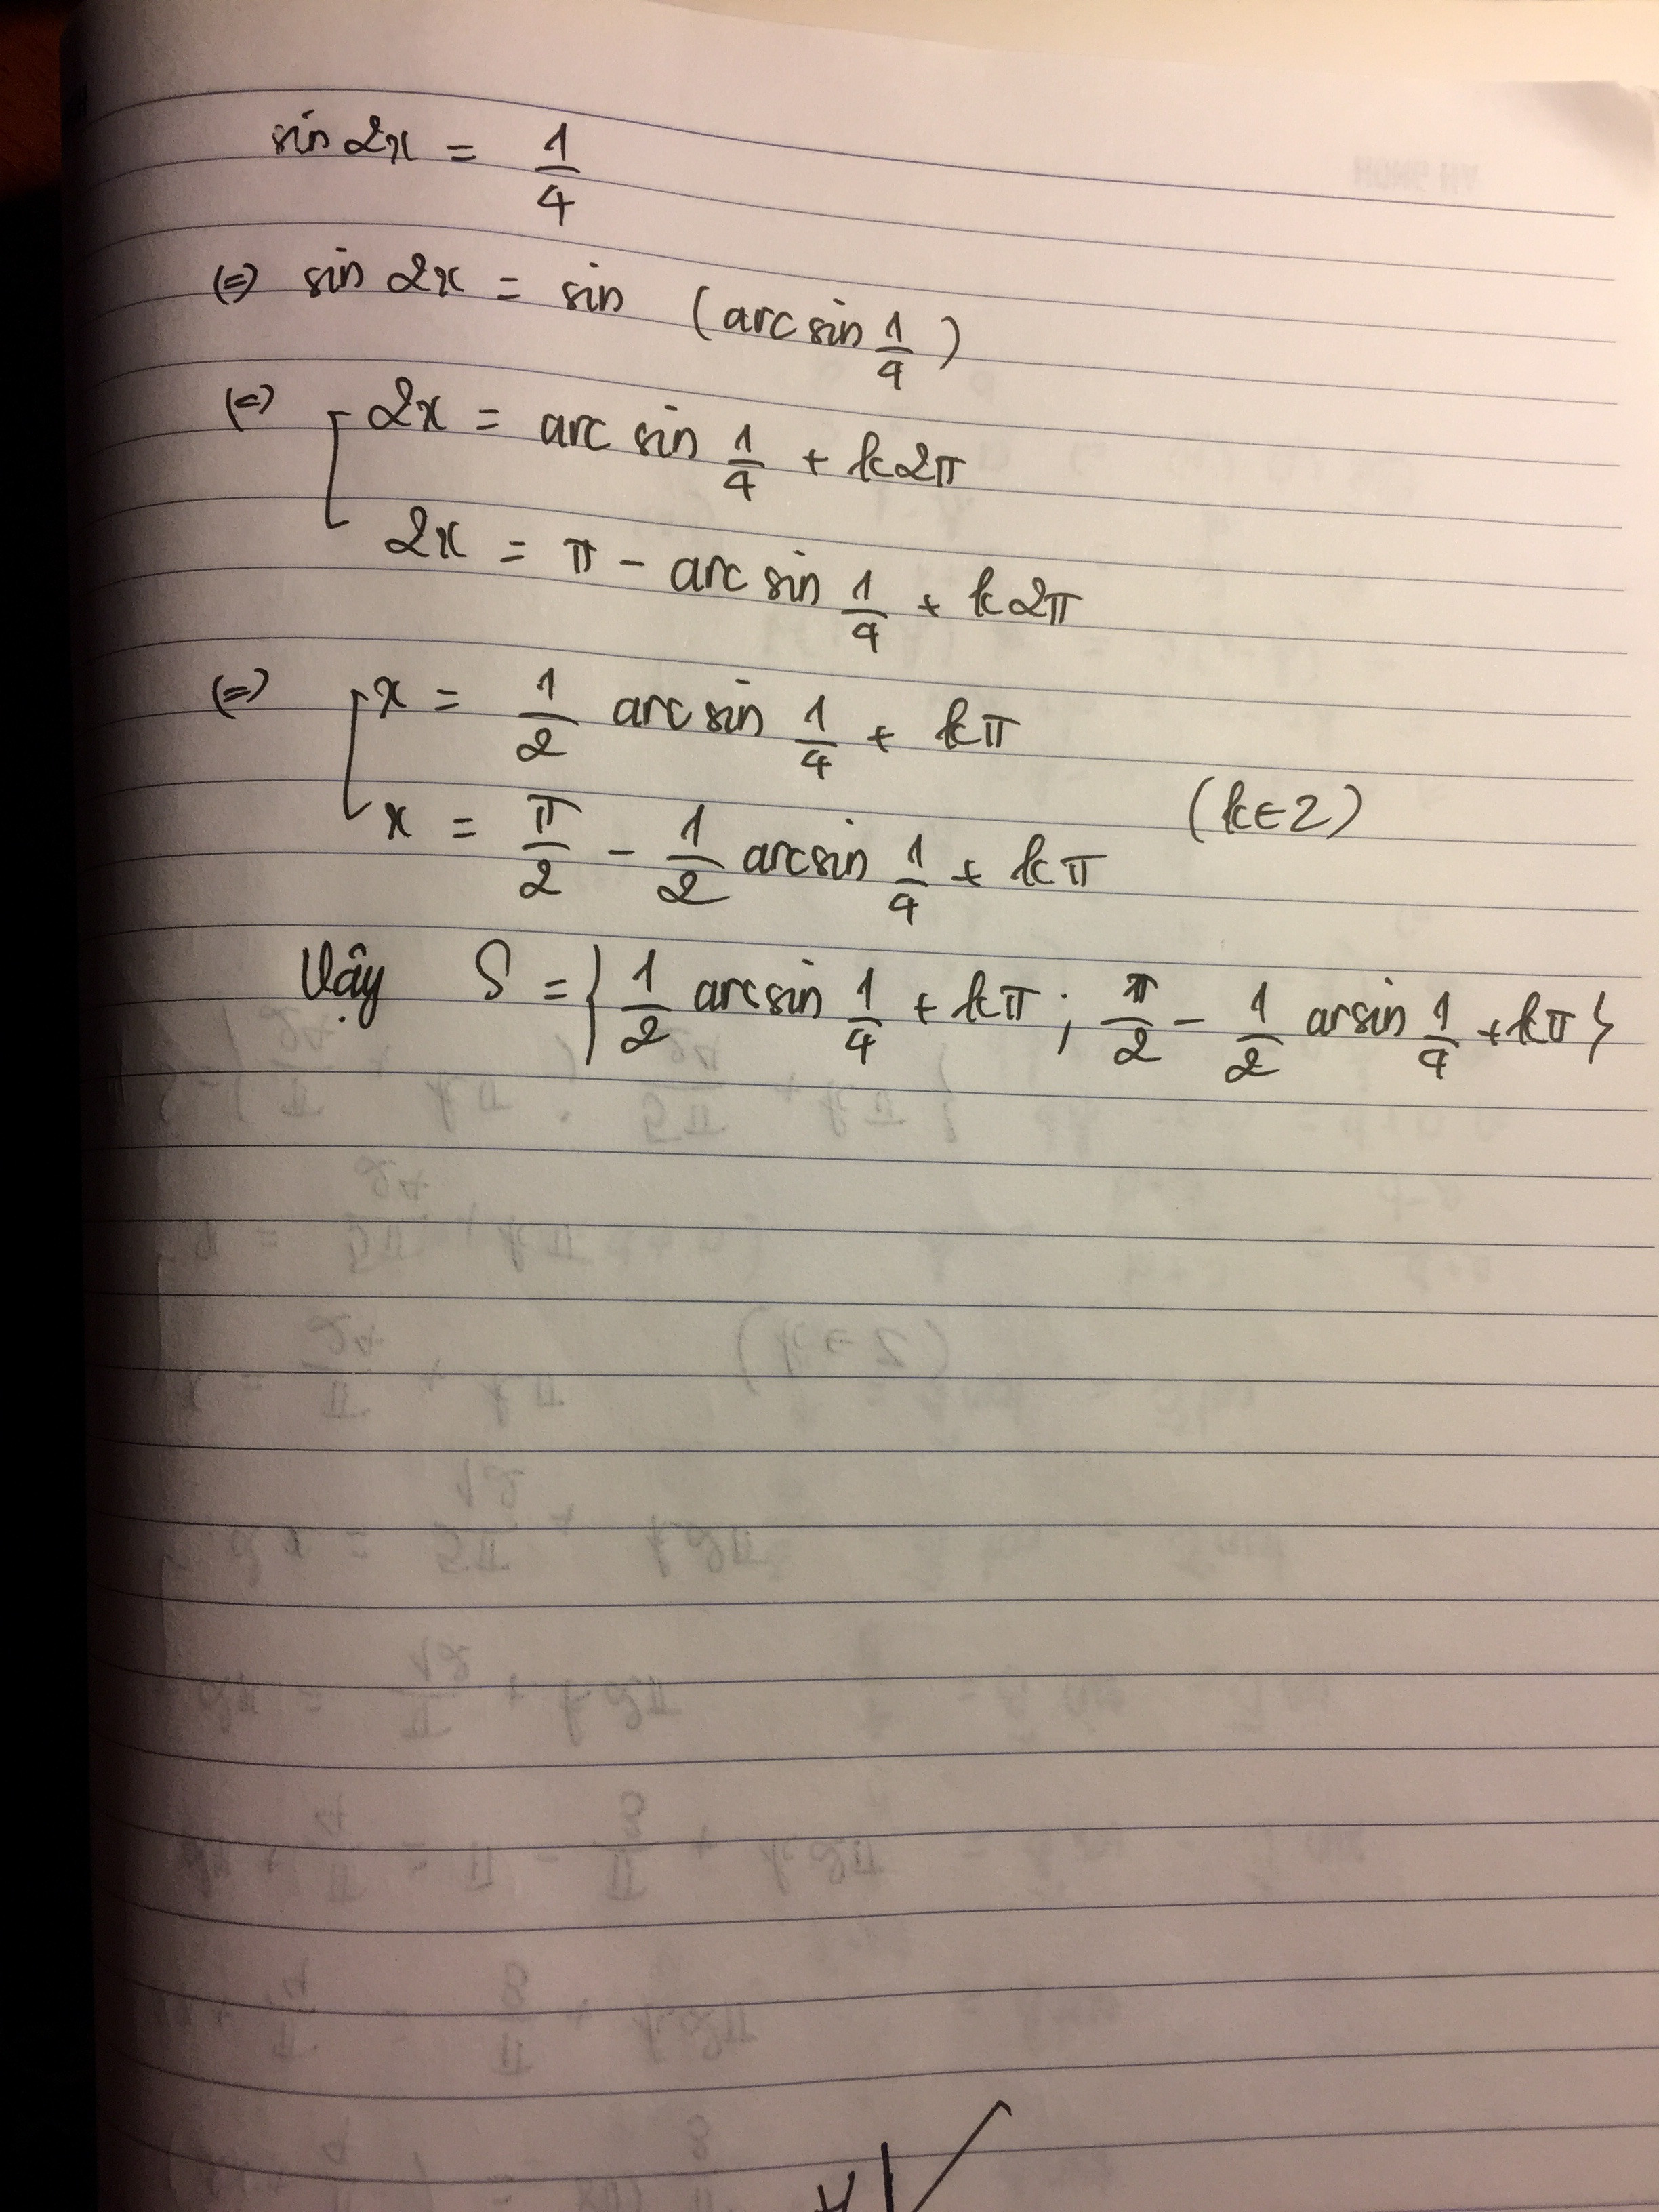 sin 2x = 1/4
(=) sin 2x = sin (arc sin 1/4)
(=) [ 2x = arc sin 1/4 + k2π
2x = π - arc sin 1/4 + k2π
(=) [ x = 1/2 arc sin 1/4 + kπ
x = π/2 - 1/2 arcsin 1/4 + kπ (k∈Z)
Vậy S = { 1/2 arcsin 1/4 + kπ ; π/2 - 1/2 arsin 1/4 + kπ }